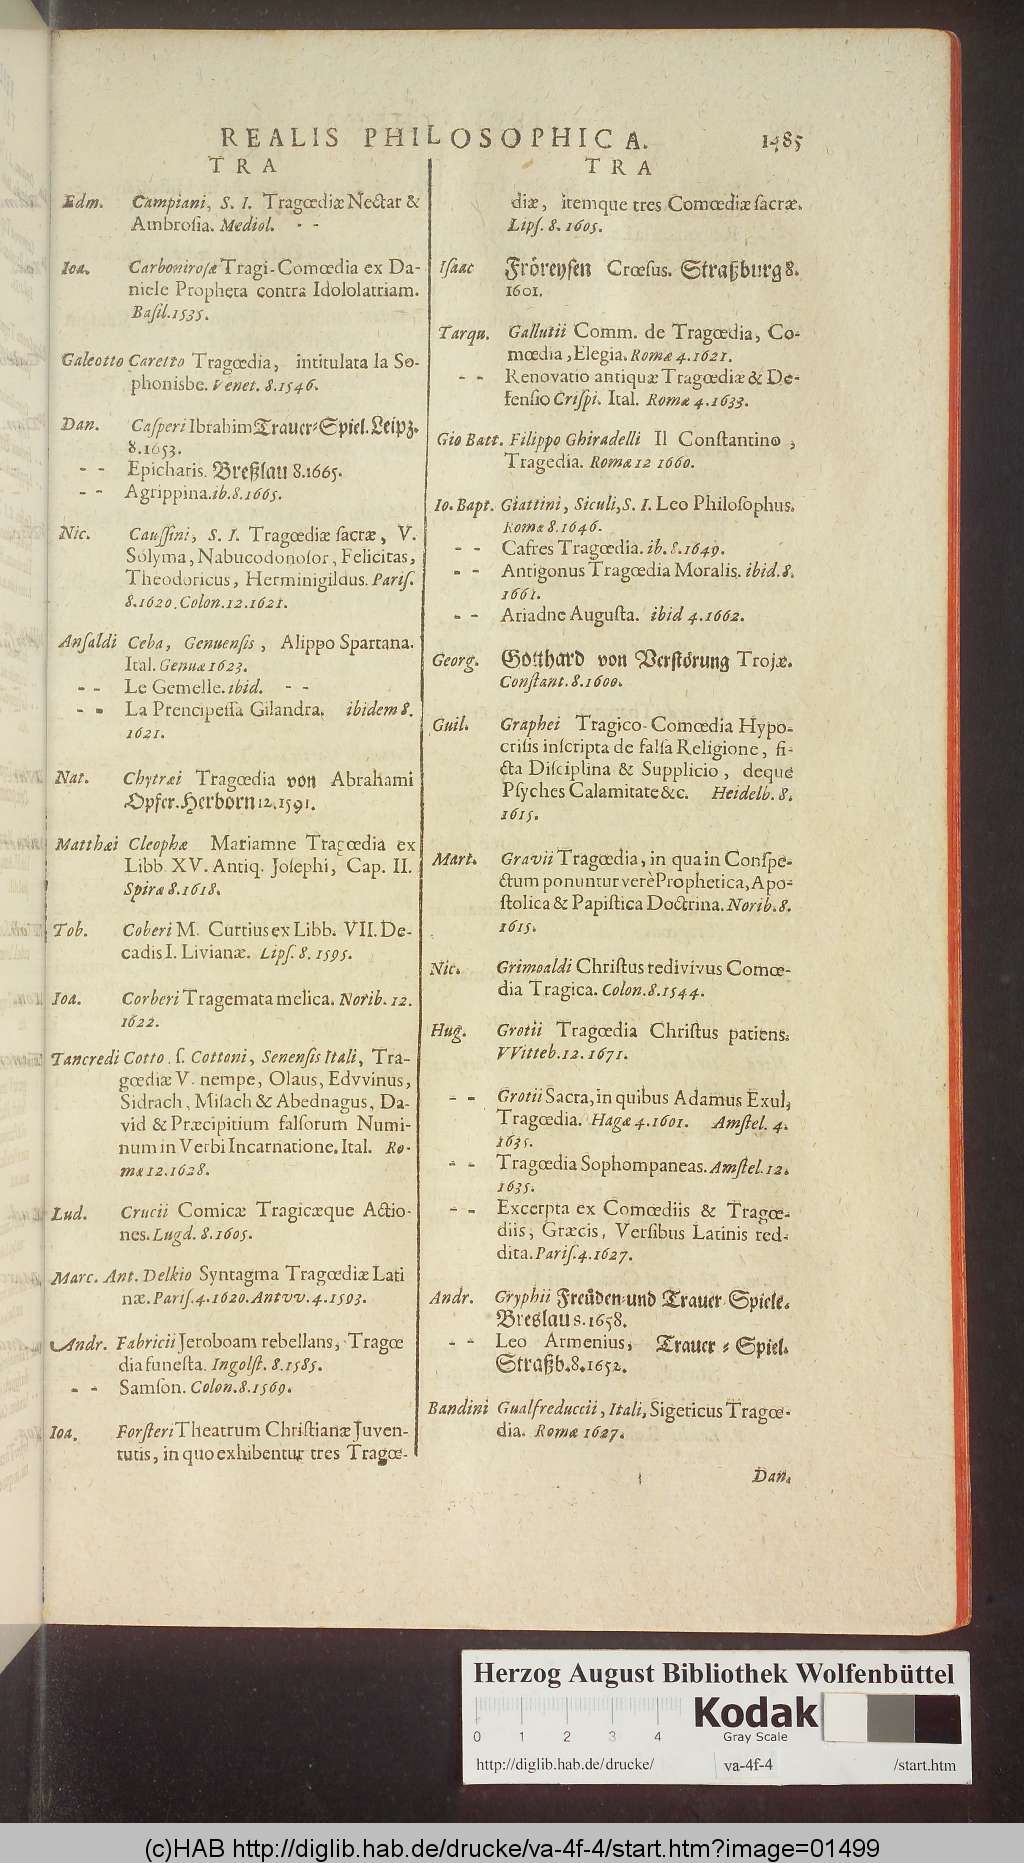 REALIS PHILOSOPHICA. 1485
TRA
Edm. Campiani, S. I. Tragœdiæ Nectar &
Ambrosia. Mediol. - -
Ioa. Carbonirosæ Tragi-Comœdia ex Da-
niele Propheta contra Idololatriam.
Basil. 1535.
Galeotto Caretto Tragœdia, intitulata la So-
phonisbe. Venet. 8. 1546.
Dan. Casperi Ibrahim Trauer-Spiel. Leipz.
8. 1653.
- - Epicharis. Breßlau 8. 1665.
- - Agrippina. ib. 8. 1665.
Nic. Caussini, S. I. Tragœdiæ sacræ, V.
Solyma, Nabucodonosor, Felicitas,
Theodoricus, Herminigildus. Paris.
8. 1620. Colon. 12. 1621.
Ansaldi Ceba, Genuensis, Alippo Spartana.
Ital. Genuæ 1623.
- - Le Gemelle. ibid. - -
- - La Prencipessa Gilandra. ibidem 8.
1621.
Nat. Chytræi Tragœdia von Abrahami
Opfer. Herborn 12. 1591.
Matthæi Cleophæ Mariamne Tragœdia ex
Libb XV. Antiq. Josephi, Cap. II.
Spiræ 8. 1618.
Tob. Coberi M. Curtius ex Libb. VII. De-
cadis I. Livianæ. Lips. 8. 1595.
Ioa. Corberi Tragemata melica. Norib. 12.
1622.
Tancredi Cotto. s. Cottoni, Senensis Itali, Tra-
gœdiæ V. nempe, Olaus, Edvvinus,
Sidrach, Misach & Abednagus, Da-
vid & Præcipitium falsorum Numi-
num in Verbi Incarnatione. Ital. Ro-
mæ 12. 1628.
Lud. Crucii Comicæ Tragicæque Actio-
nes. Lugd. 8. 1605.
Marc. Ant. Delkio Syntagma Tragœdiæ Lati
næ. Paris. 4. 1620. Antvv. 4. 1593.
Andr. Fabricii Jeroboam rebellans, Tragœ
dia funesta. Ingolst. 8. 1585.
- - Samson. Colon. 8. 1569.
Ioa. Forsteri Theatrum Christianæ Juven-
tutis, in quo exhibentur tres Tragœ-
TRA
diæ, itemque tres Comœdiæ sacræ.
Lips. 8. 1605.
Isaac Fröreysen Crœsus. Straßburg 8.
1601.
Tarqu. Gallutii Comm. de Tragœdia, Co-
mœdia, Elegia. Romæ 4. 1621.
- - Renovatio antiquæ Tragœdiæ & De-
fensio Crispi. Ital. Romæ 4. 1633.
Gio Batt. Filippo Ghiradelli Il Constantino,
Tragedia. Romæ 12 1660.
Io. Bapt. Giattini, Siculi, S. I. Leo Philosophus.
Romæ 8. 1646.
- - Cafres Tragœdia. ib. 8. 1649.
- - Antigonus Tragœdia Moralis. ibid. 8.
1661.
- - Ariadne Augusta. ibid 4. 1662.
Georg. Gotthard von Verstörung Trojæ.
Constant. 8. 1600.
Guil. Graphei Tragico-Comœdia Hypo-
crisis inscripta de falsa Religione, fi-
cta Disciplina & Supplicio, deque
Psyches Calamitate &c. Heidelb. 8.
1615.
Mart. Gravii Tragœdia, in qua in Conspe-
ctum ponuntur verè Prophetica, Apo-
stolica & Papistica Doctrina. Norib. 8.
1615.
Nic. Grimoaldi Christus redivivus Comœ-
dia Tragica. Colon. 8. 1544.
Hug. Grotii Tragœdia Christus patiens.
VVitteb. 12. 1671.
- - Grotii Sacra, in quibus Adamus Exul,
Tragœdia. Hagæ 4. 1601. Amstel. 4.
1635.
- - Tragœdia Sophompaneas. Amstel. 12.
1635.
- - Excerpta ex Comœdiis & Tragœ-
diis, Græcis, Versibus Latinis red-
dita. Paris. 4. 1627.
Andr. Gryphii Freüden-und Trauer-Spiele.
Breslau 8. 1658.
- - Leo Armenius, Trauer-Spiel.
Straßb. 8. 1652.
Bandini Gualfreduccii, Itali, Sigeticus Tragœ-
dia. Romæ 1627.
Dan.
Herzog August Bibliothek Wolfenbüttel
0 1 2 3 4
Kodak
Gray Scale
http://diglib.hab.de/drucke/ va-4f-4 /start.htm
(c)HAB http://diglib.hab.de/drucke/va-4f-4/start.htm?image=01499